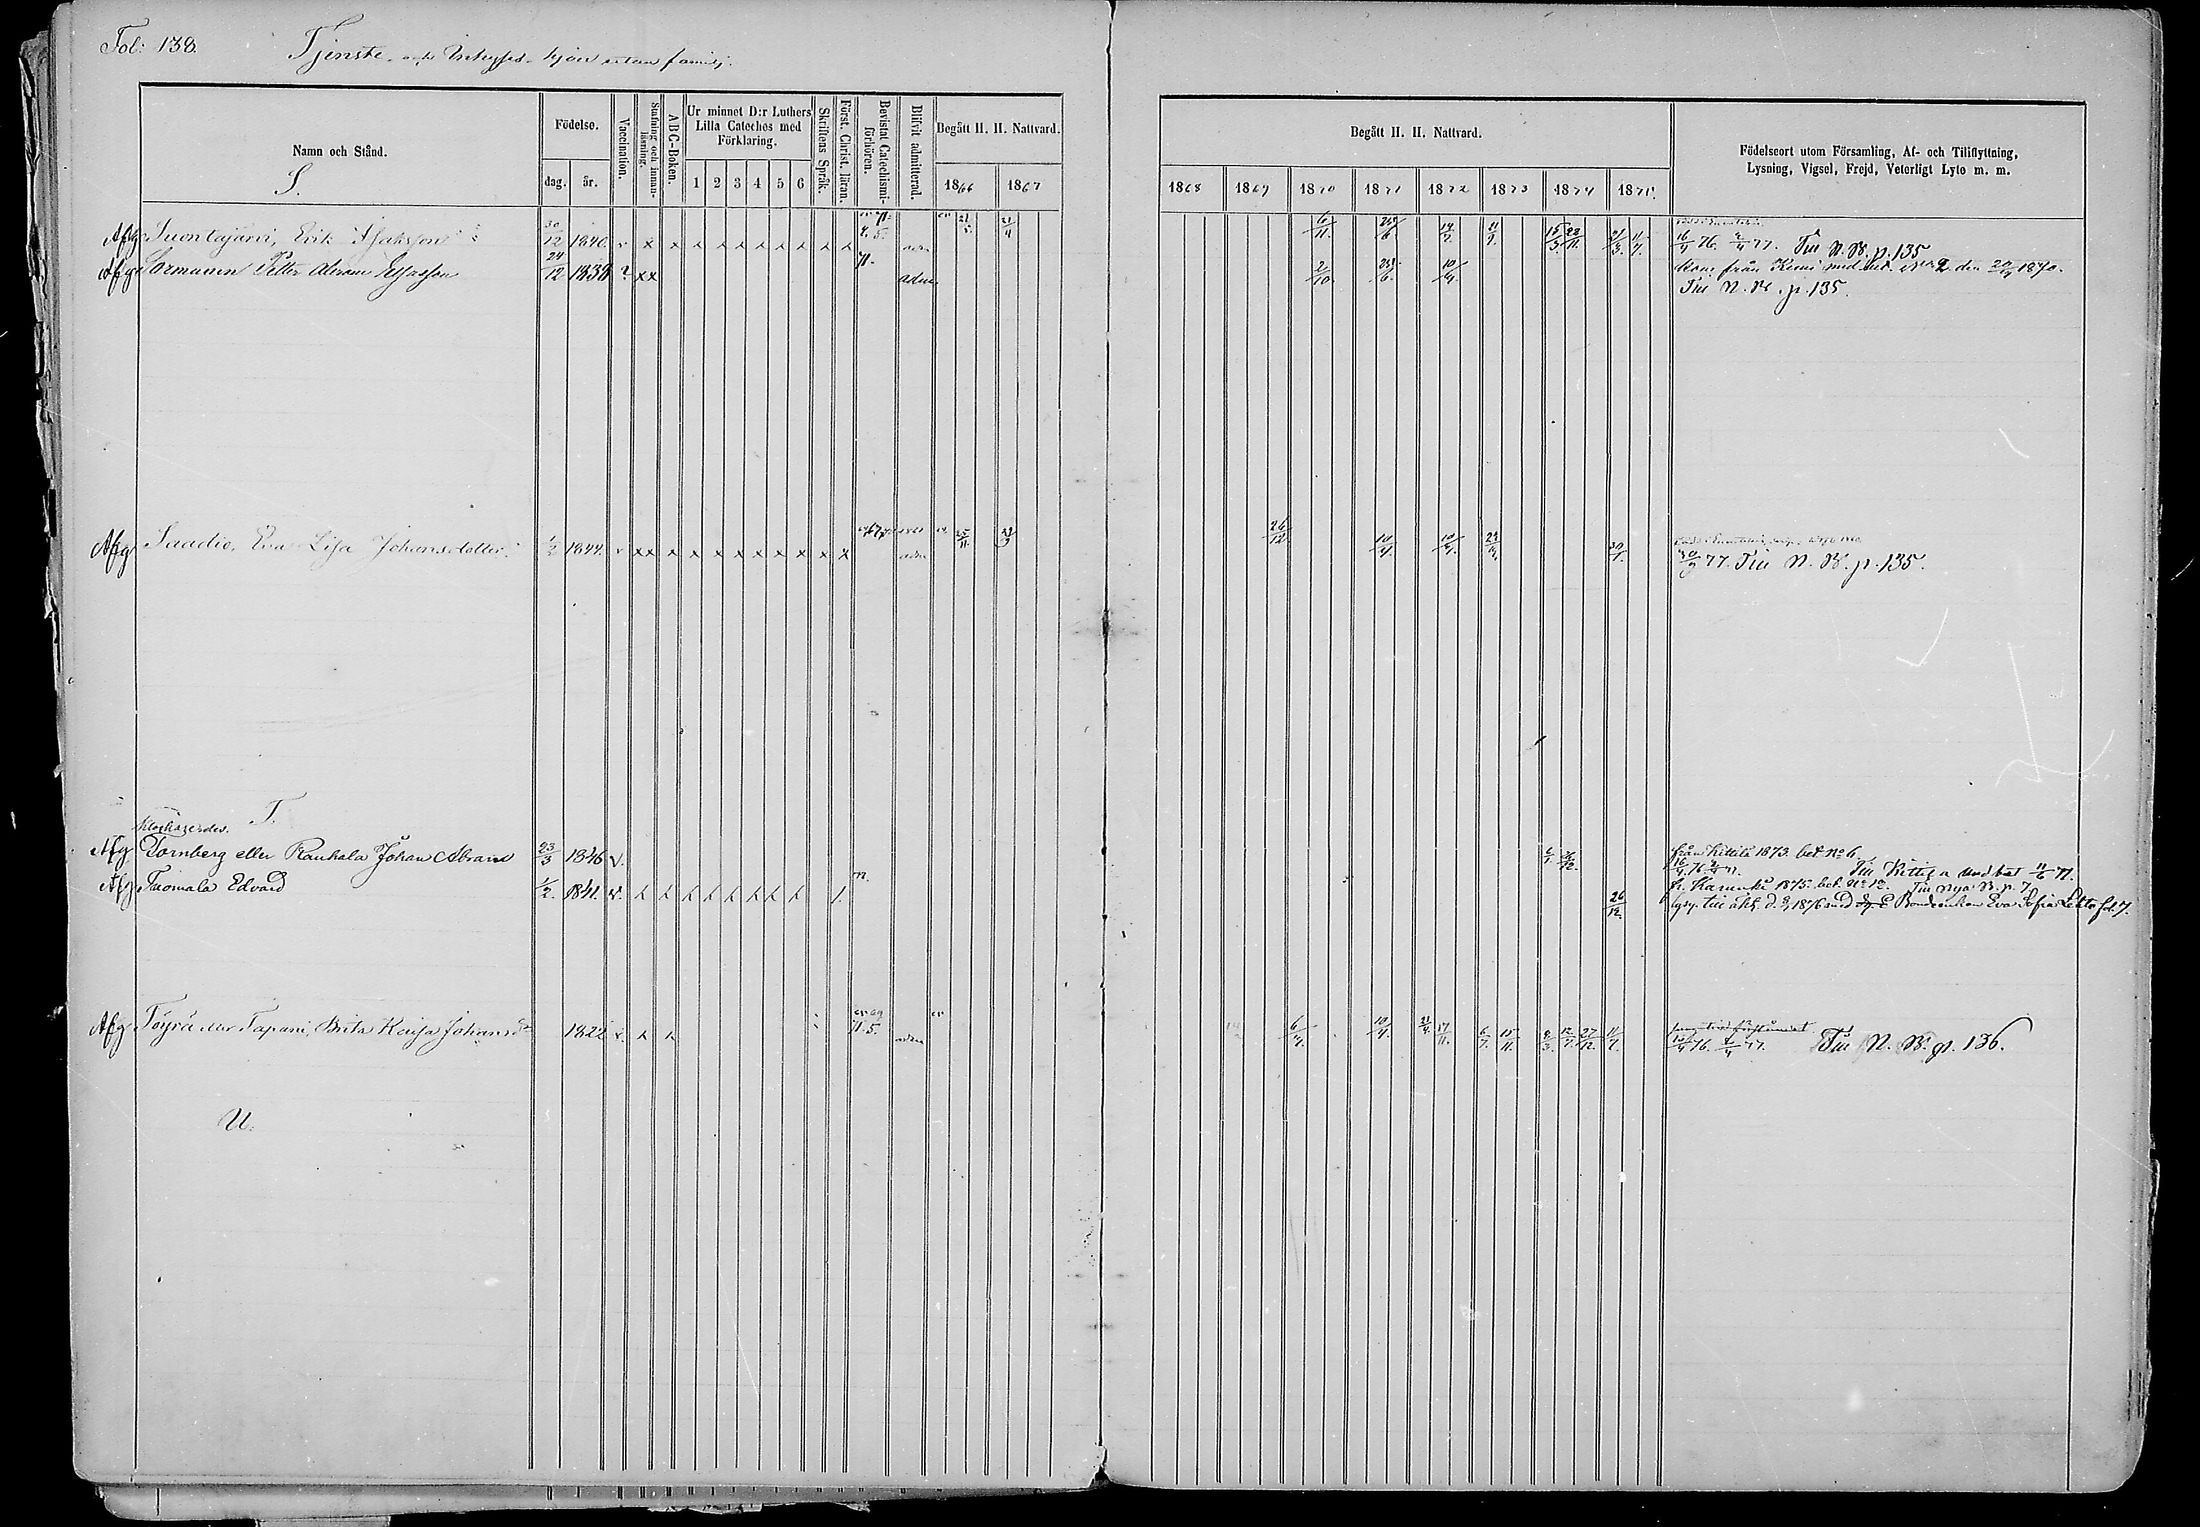 Fol: 138.
Tjenste- och Inhyses-hjon utan familj.
Namn och Stånd.
S.
Födelse.
dag. år.
Vaccination.
Stafning och innanläsning.
ABC-Boken.
Ur minnet D:r Luthers Lilla Cateches med Förklaring.
1 2 3 4 5 6
Skriftens Språk.
Först. Christ. läran.
Bevistat Catechismi-förhören.
Blifvit admitterad.
Begått H. H. Nattvard.
1866 1867
Begått H. H. Nattvard.
1868 1869 1870 1871 1872 1873 1874 1875.
Födelseort utom Församling, Af- och Tillflyttning, Lysning, Vigsel, Frejd, Veterligt Lyte m. m.
Afg Suontajärvi, Erik Isaksson 30/12 1840. v x x x x x x x x x x adm 21/4 6/11. 14/7. 15/3. 22/11. 21/3. 11/7. 16/4 76. 2/4 77. Till N. B. p. 135
Afg Sormunen Petter Abram 24/12 1838 ? xx 71. adm. 2/10. 10/4. Kom från Kemi med bet. N:o 2 den 20/9 1870.
Till N. B. p. 135.
Afg Saadio, Eva Lisa Johansdotter. 1/2 1844. v xx x x x x x x x x x adm 25/11. 26/12 10/4 10/4. 30/1.
30/9 77. Till N. B. p. 135.
T.
Afg Tornberg eller Rauhala Johan Abram 23/3 1846 v. 6/1. 26/12. från Kittilä 1873. bet. N:o 6.
16/4 76 2/4 77. Till Kittilä med bet 11/6 77.
Afg Tuomala Edvard 1/2. 1841. v. 26/12. fr. Karunki 1875. bet. N:o 12. Till nya B. p. 7
lyg. till äkt. d. 9/7 1876 med Bondeenkan Eva Sofia Lehto fol 7.
Afg Töyrä eller Tapani, Brita Kaisa Johansd:r 1822 v. x x 71. 5. adm 6/4. 10/4. 21/4. 17/11. 6/7. 15/11. 8/3. 12/7. 27/12. 11/7.
10/4 76. 2/4 77. Till N. B. p. 136.
U.